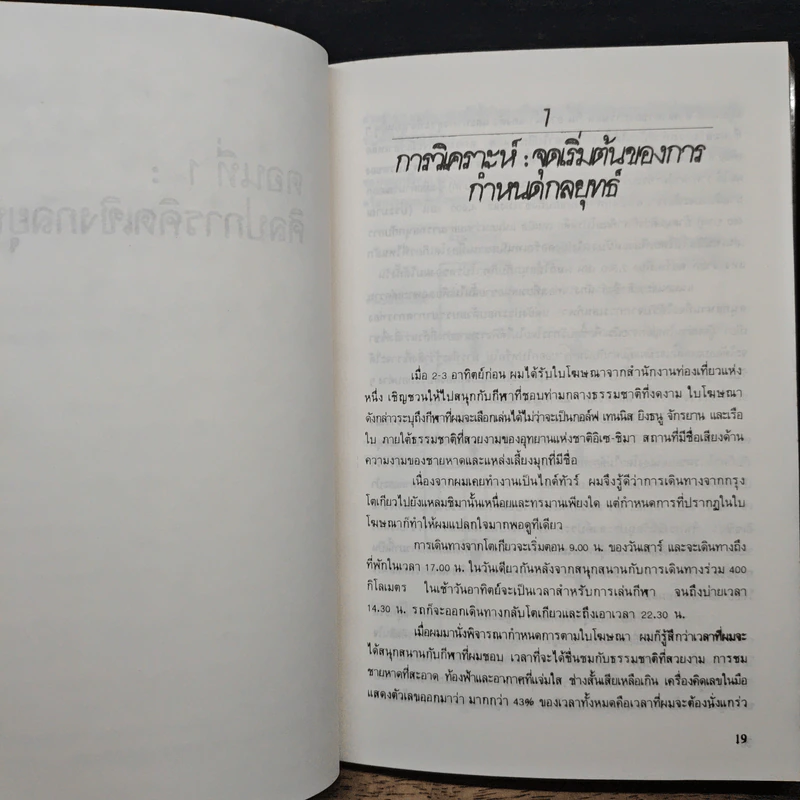 1
การวิเคราะห์ : จุดเริ่มต้นของการ
กำหนดกลยุทธ์
เมื่อ 2-3 อาทิตย์ก่อน ผมได้รับใบโฆษณาจากสำนักงานท่องเที่ยวแห่ง
หนึ่ง เชิญชวนให้ไปสนุกกับกีฬาที่ชอบท่ามกลางธรรมชาติที่งดงาม ใบโฆษณา
ดังกล่าวระบุถึงกีฬาที่ผมจะเลือกเล่นได้ไม่ว่าจะเป็นกอล์ฟ เทนนิส ยิงธนู จักรยาน และเรือ
ใบ ภายใต้ธรรมชาติที่สวยงามของอุทยานแห่งชาติอิเซ-ชิมา สถานที่มีชื่อเสียงด้าน
ความงามของชายหาดและแหล่งเลี้ยงมุกที่มีชื่อ
เนื่องจากผมเคยทำงานเป็นไกด์ทัวร์ ผมจึงรู้ดีว่าการเดินทางจากกรุง
โตเกียวไปยังแหลมชิมานั้นเหนื่อยและทรมานเพียงใด แต่กำหนดการที่ปรากฏในใบ
โฆษณาก็ทำให้ผมแปลกใจมากพอดูทีเดียว
การเดินทางจากโตเกียวจะเริ่มตอน 9.00 น. ของวันเสาร์ และจะเดินทางถึง
ที่พักในเวลา 17.00 น. ในวันเดียวกันหลังจากสนุกสนานกับการเดินทางร่วม 400
กิโลเมตร ในเช้าวันอาทิตย์จะเป็นเวลาสำหรับการเล่นกีฬา จนถึงบ่ายเวลา
14.30 น. รถก็จะออกเดินทางกลับโตเกียวและถึงเอาเวลา 22.30 น.
เมื่อผมมานั่งพิจารณากำหนดการตามใบโฆษณา ผมก็รู้สึกว่าเวลาที่ผมจะ
ได้สนุกสนานกับกีฬาที่ผมชอบ เวลาที่จะได้ชื่นชมกับธรรมชาติที่สวยงาม การชม
ชายหาดที่สะอาด ท้องฟ้าและอากาศที่แจ่มใส ช่างสั้นเสียเหลือเกิน เครื่องคิดเลขในมือ
แสดงตัวเลขออกมาว่า มากกว่า 43% ของเวลาทั้งหมดคือเวลาที่ผมจะต้องนั่งแกร่ว
19